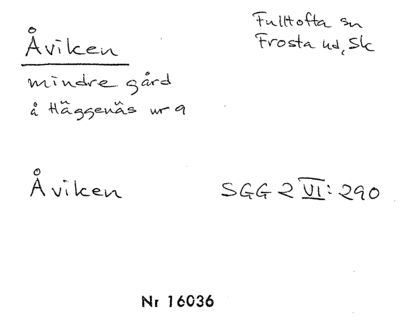 Åviken
Fulltofta sn
Frosta hd, Sk
mindre gård
å Häggenäs nr 9
Åviken
SGG 2 VI: 290
Nr 16036